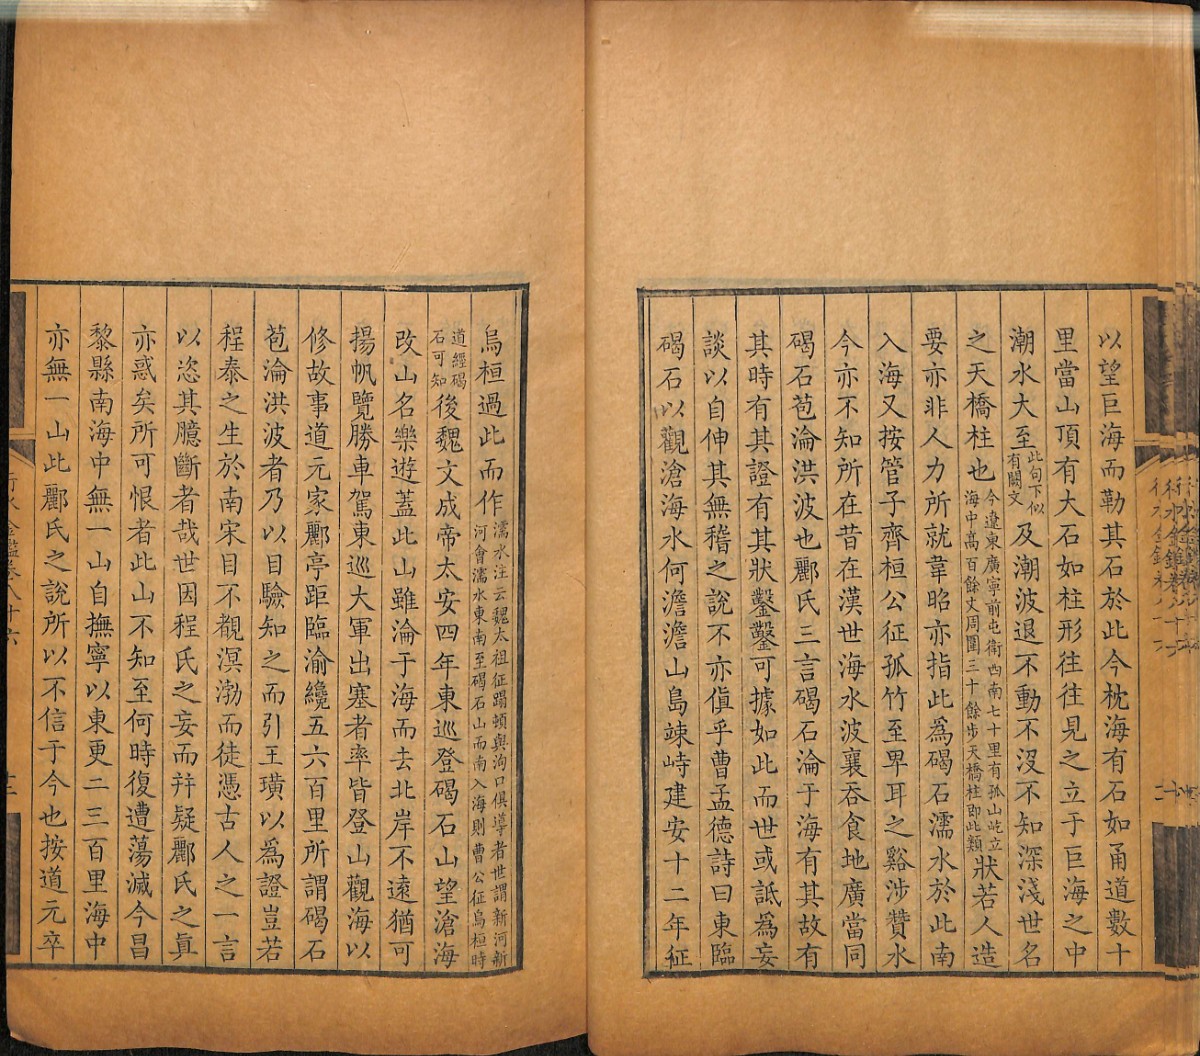 以望巨海而勒其石於此今枕海有石如甬道數十
里當山頂有大石如柱形往往見之立于巨海之中
潮水大至此句下似有闕文及潮波退不動不沒不知深淺世名
之天橋柱也今遼東廣寧前屯衛西南七十里有孤山屹立海中高百餘丈周圍三十餘步天橋柱即此類狀若人造
要亦非人力所就韋昭亦指此為碣石濡水於此南
入海又按管子齊桓公征孤竹至卑耳之谿涉贊水
今亦不知所在昔在漢世海水波襄吞食地廣當同
碣石苞淪洪波也酈氏三言碣石淪于海有其故有
其時有其證有其狀鑿鑿可據如此而世或詆為妄
談以自伸其無稽之說不亦傎乎曹孟德詩曰東臨
碣石以觀滄海水何澹澹山島竦峙建安十二年征
烏桓過此而作濡水注云魏太祖征蹋頓與沟口俱導者世謂新河新河會濡水東南至碣石山而南入海則曹公征烏桓時
道經碣石可知後魏文成帝太安四年東巡登碣石山望滄海
改山名樂遊蓋此山雖淪于海而去北岸不遠猶可
揚帆覽勝車駕東巡大軍出塞者率皆登山觀海以
修故事道元家酈亭距臨渝纔五六百里所謂碣石
苞淪洪波者乃以目驗知之而引王璜以為證豈若
程泰之生於南宋目不覩溟渤而徒憑古人之一言
以恣其臆斷者哉世因程氏之妄而并疑酈氏之真
亦惑矣所可恨者此山不知至何時復遭蕩滅今昌
黎縣南海中無一山自撫寧以東更二三百里海中
亦無一山此酈氏之說所以不信于今也按道元卒
行水金鑑卷八十六